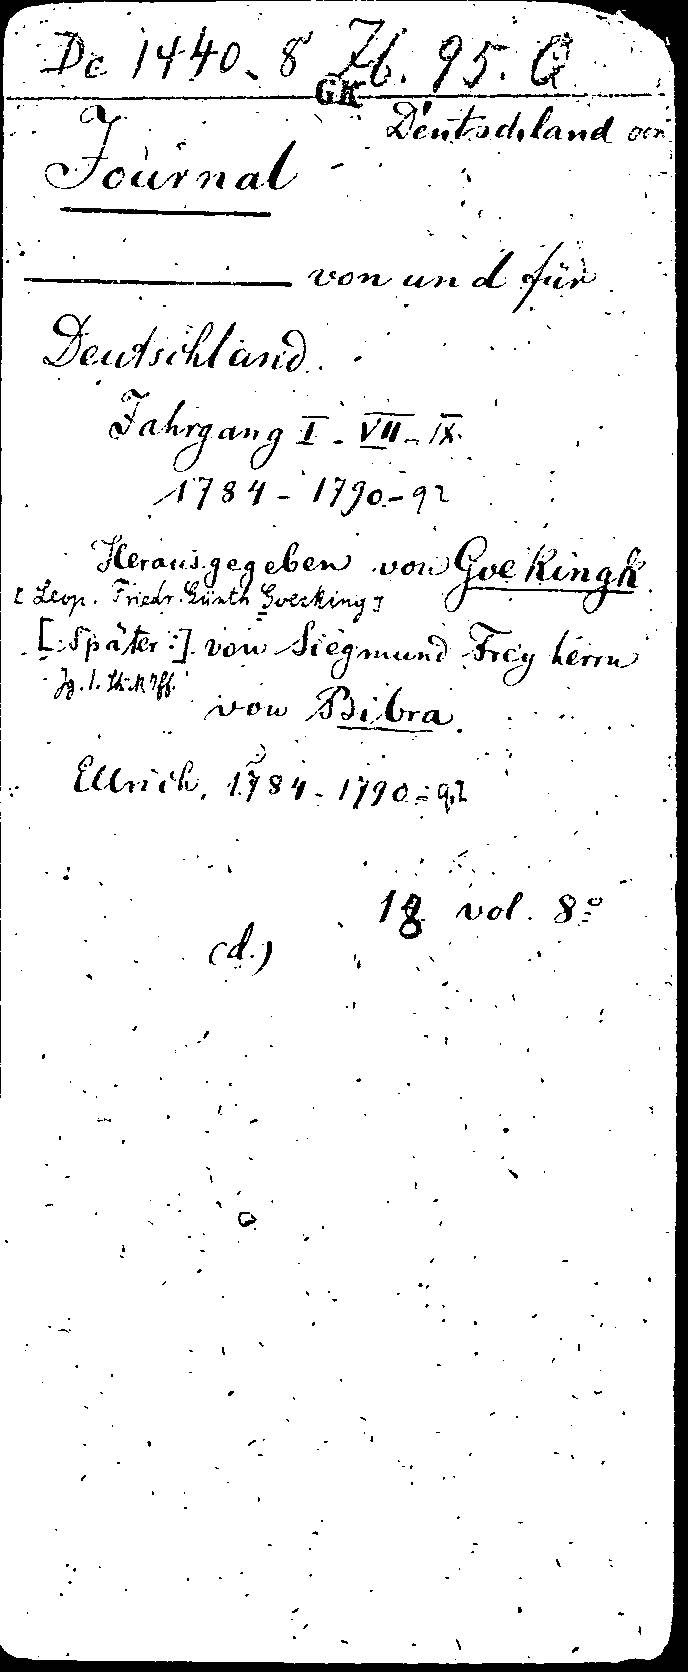 Dc 1440-8 Zb. 95. Q
GK
Deutschland
Journal -
von und für
Deutschland.
Jahrgang I - VII - IX.
1784 - 1790 - 92
Herausgegeben von Goekingk
[Leop. Friedr. Günth Goecking]
[: Später :] von Siegmund Frey herrn
von Bibra.
Ellrich, 1784 - 1790 - 92
18 vol. 8º
(d.)